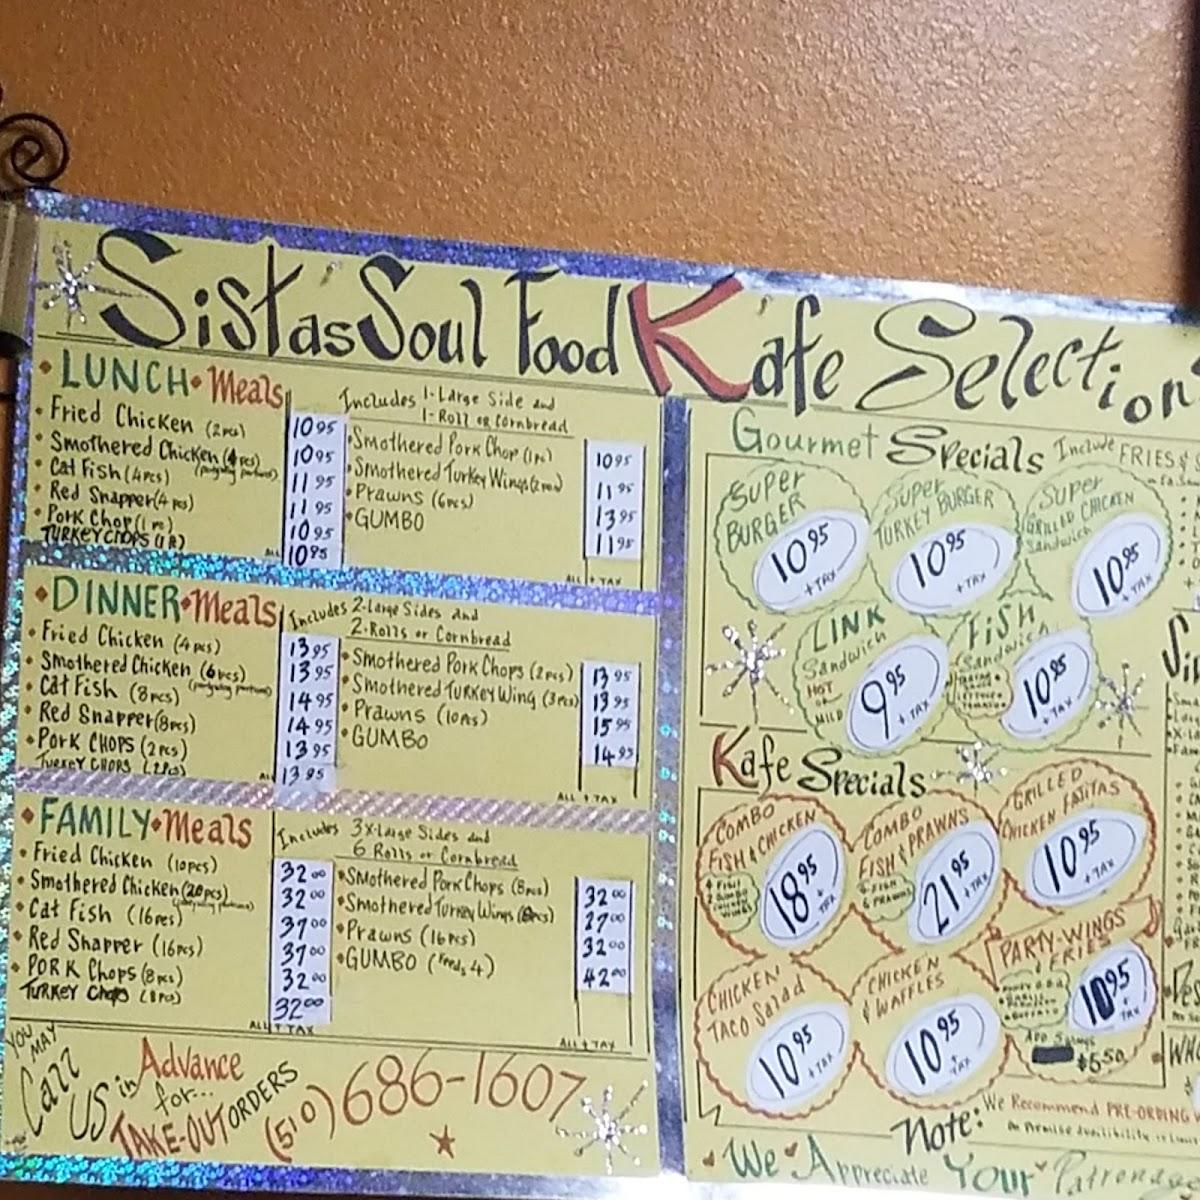 Sista's Soul Food Kafe Selection
• LUNCH • Meals
Includes 1-Large Side and
1-Roll or Cornbread
• Fried Chicken (2pcs) 10 95
• Smothered Chicken (4pcs) 10 95
• Cat Fish (4pcs) 11 95
• Red Snapper (4pcs) 11 95
• Pork Chop (1pc) 10 95
TURKEY CHOPS 10 95
• Smothered Pork Chop (1pc) 10 95
• Smothered Turkey Wings 11 95
• Prawns (6pcs) 13 95
• GUMBO 11 95
ALL + TAX
• DINNER • Meals
Includes 2-Large Sides and
2-Rolls or Cornbread
• Fried Chicken (4pcs) 13 95
• Smothered Chicken (6pcs) 13 95
• Cat Fish (8pcs) 14 95
• Red Snapper (8pcs) 14 95
• Pork CHOPS (2pcs) 13 95
Turkey CHOPS (2pcs) 13 95
• Smothered Pork Chops (2pcs) 13 95
• Smothered Turkey Wing (3pcs) 13 95
• Prawns (10pcs) 15 95
• GUMBO 14 95
ALL + TAX
• FAMILY • Meals
Includes 3X-Large Sides and
6 Rolls or Cornbread
• Fried Chicken (10pcs) 32 00
• Smothered Chicken (20pcs) 32 00
• Cat Fish (16pcs) 37 00
• Red Snapper (16pcs) 37 00
• PORK Chops (8pcs) 32 00
TURKEY Chops (8pcs) 32 00
ALL + TAX
• Smothered Pork Chops (8pcs) 32 00
• Smothered Turkey Wings 27 00
• Prawns (16pcs) 32 00
• GUMBO (Feeds 4) 42 00
ALL + TAX
YOU MAY
Call US in Advance
for...
TAKE-OUT ORDERS
(510) 686-1607
Gourmet Specials Include FRIES &
SUPER BURGER 10 95 + TAX
SUPER TURKEY BURGER 10 95 + TAX
SUPER GRILLED CHICKEN Sandwich 10 95 + TAX
LINK Sandwich HOT or MILD 9 95 + TAX
FISH Sandwich 10 95 + TAX
Kafe Specials
COMBO FISH & CHICKEN 18 95 + TAX
COMBO FISH & PRAWNS 21 95 + TAX
GRILLED CHICKEN FAJITAS 10 95 + TAX
CHICKEN TACO Salad 10 95 + TAX
CHICKEN & WAFFLES 10 95 + TAX
PARTY-WINGS & FRIES 10 95 + TAX
$6.50
Note: We Recommend PRE-ORDING
We Appreciate Your Patronage